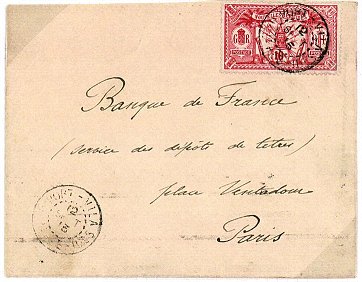 Banque de France
(service des dépôts de titres)
place Ventadour
Paris
PORT-VILA